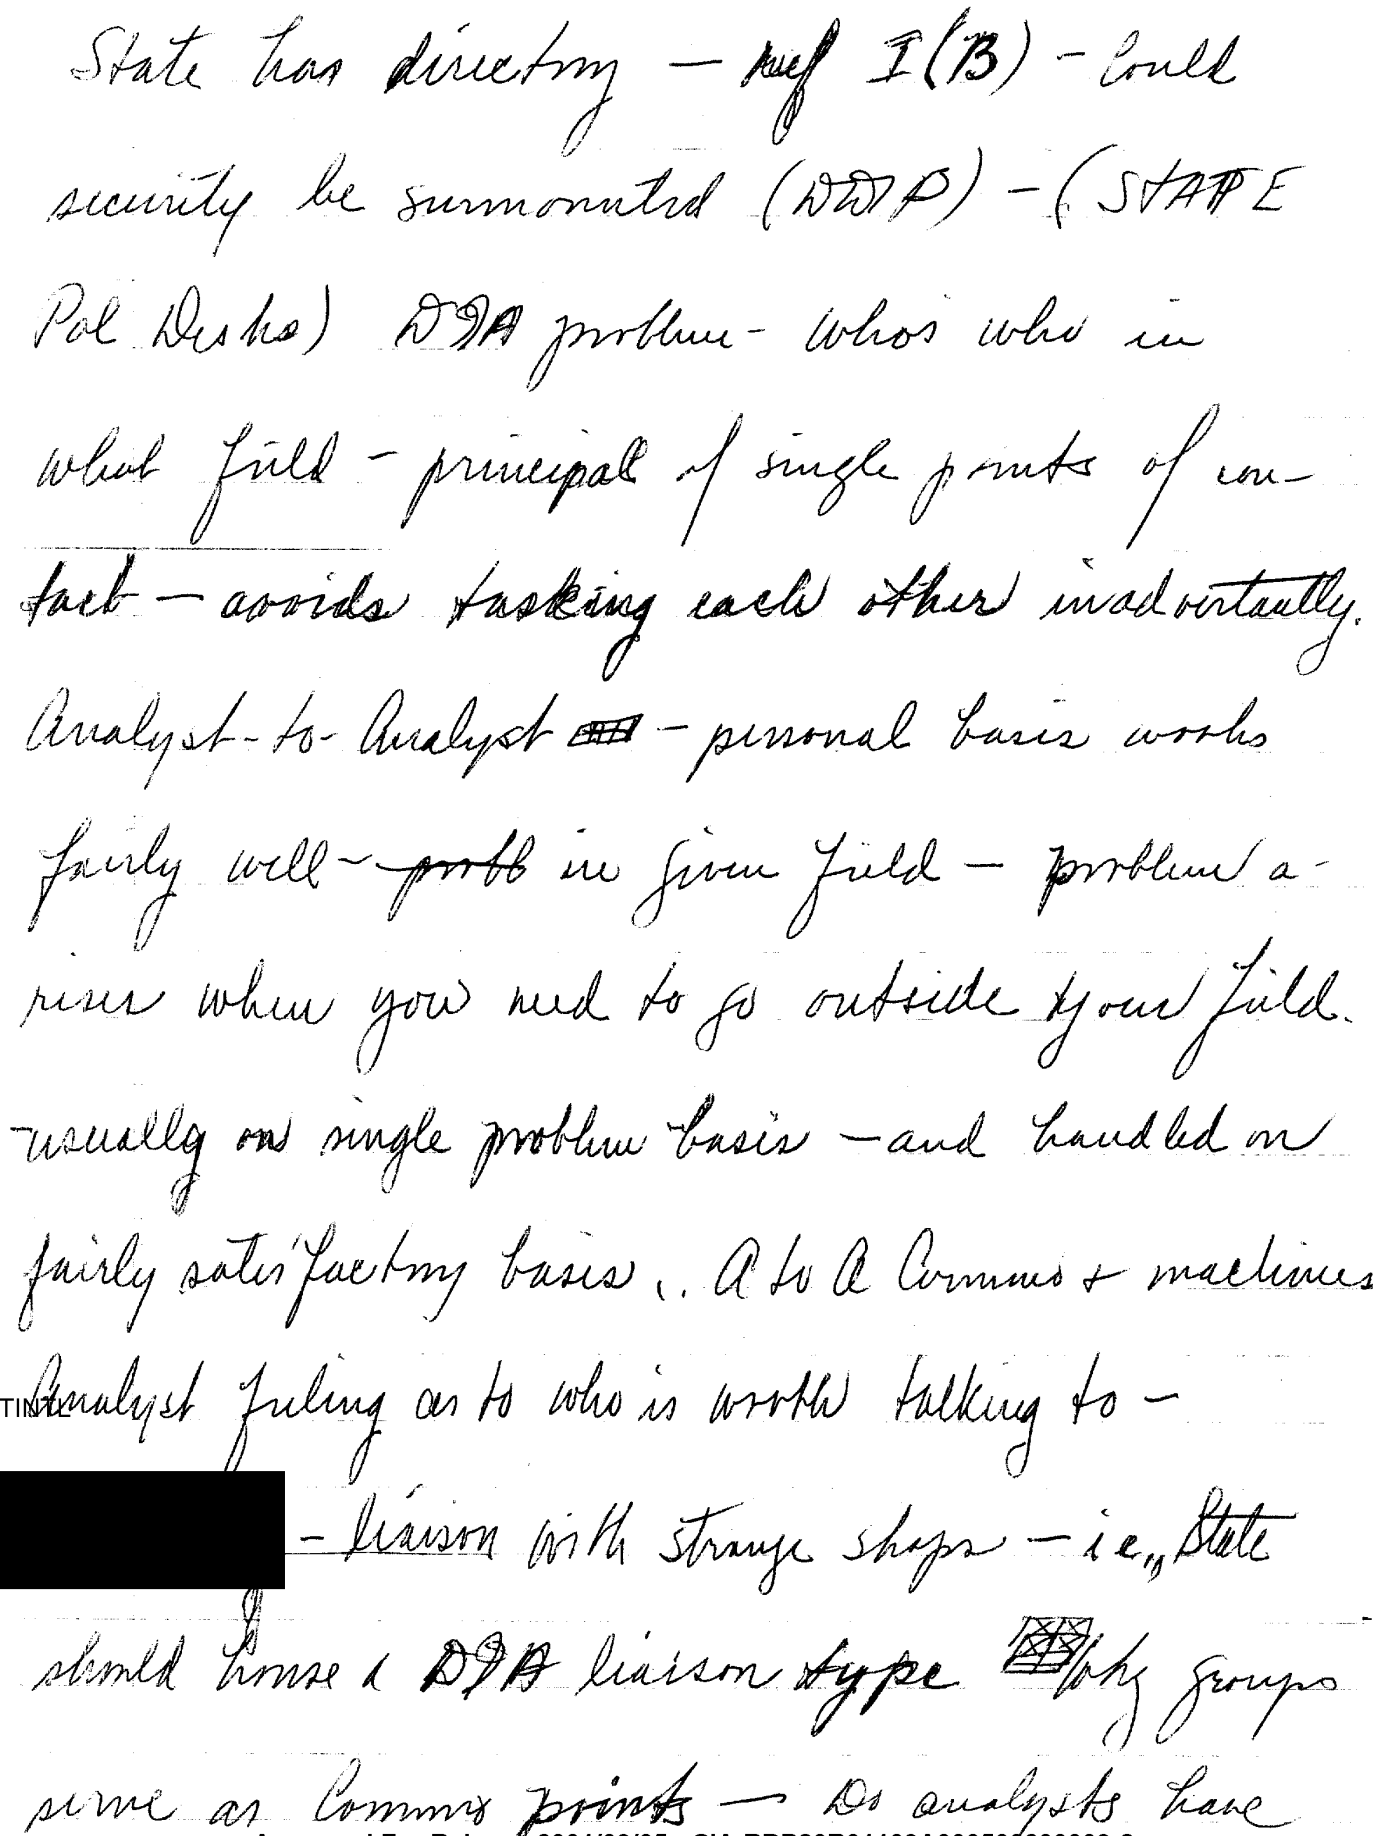 State has directory — ref I(B) - Could
security be surmounted (DDP) - (STATE
Pol Desks) DIA problem - whos who in
what field - principal of single points of con-
tact — avoids tasking each other inadvertantly.
Analyst-to-Analyst - personal basis works
fairly well - probl in given field — problem a-
rises when you need to go outside your field.
-usually on single problem basis — and handled on
fairly satisfactory basis. A to A Commo & machines
Analyst feeling as to who is worth talking to —
- liaison with strange shops — ie, State
should house a DIA liaison type Wkg groups
serve as Commo points — Do analysts have